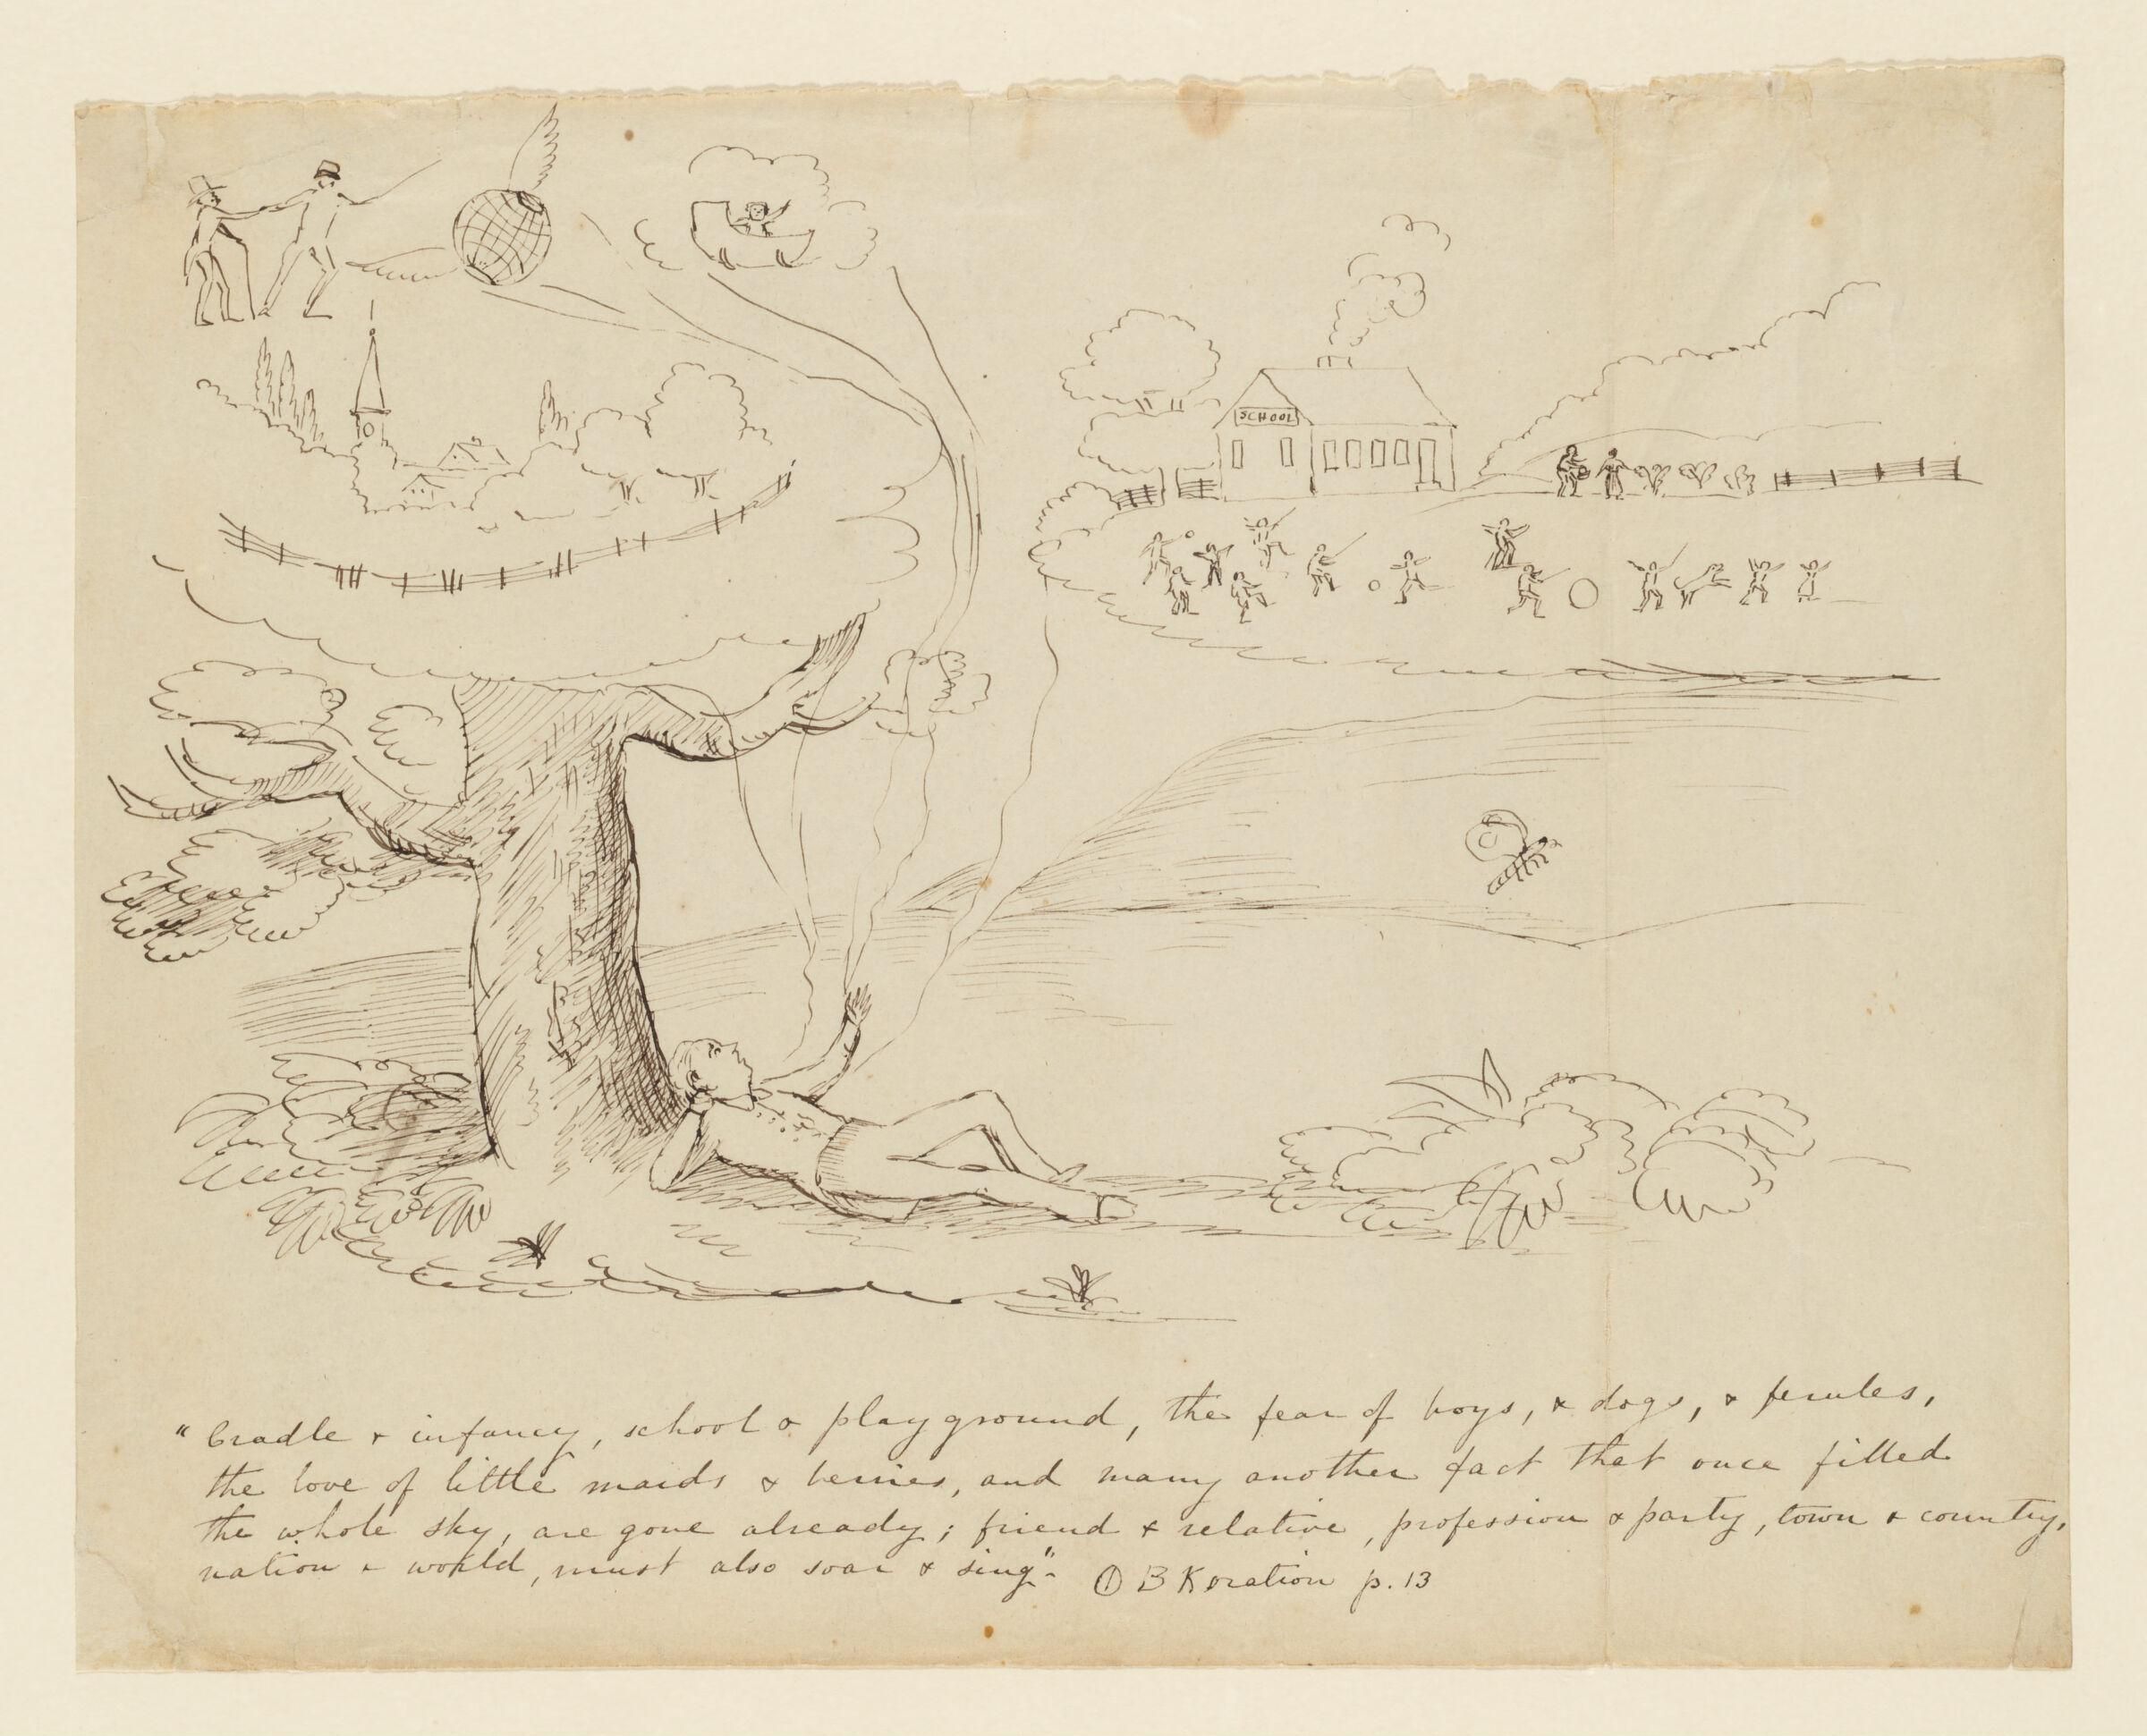 SCHOOL
"Cradle & infancy, school & playground, the fear of boys, & dogs, & ferules,
the love of little maids & berries, and many another fact that once filled
the whole sky, are gone already; friend & relative, profession & party, town & country,
nation & world, must also soar & sing" Φ B K oration p. 13